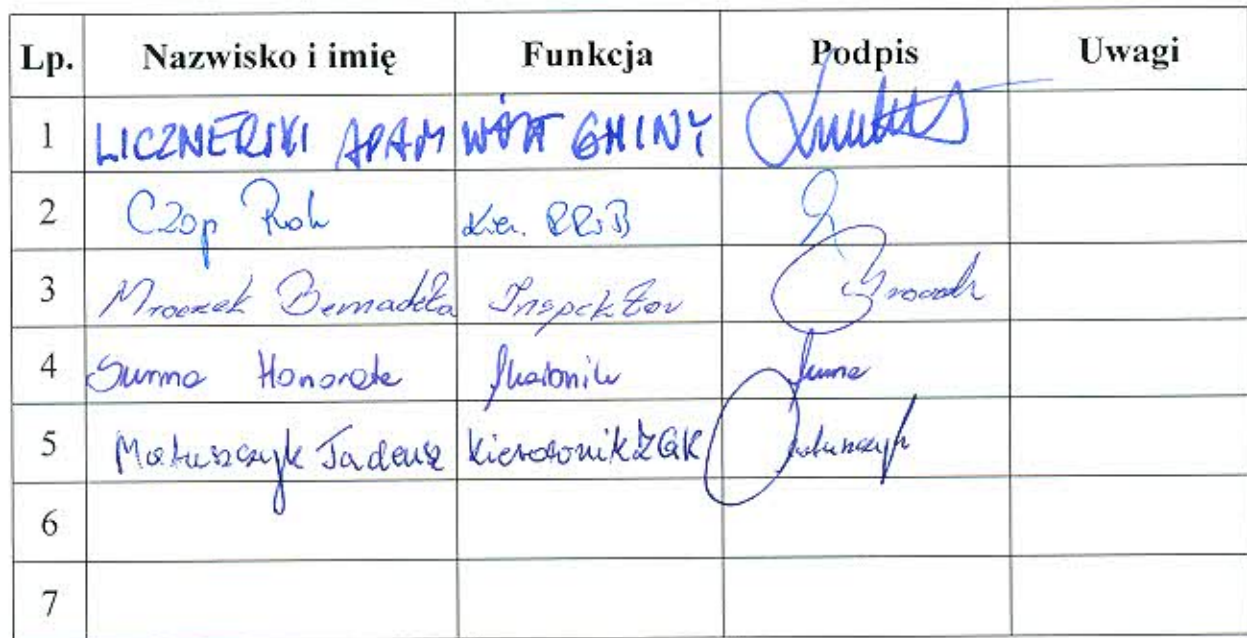 Lp. Nazwisko i imię Funkcja Podpis Uwagi
1 LICZNERSKI ADAM WÓJT GMINY
2 Czop Roh Kier. RRiB
3 Mroczek Bernadeta Inspektor
4 Surma Honorata Skarbnik Surma
5 Matuszczyk Tadeusz Kierownik ZGK Matuszczyk
6
7